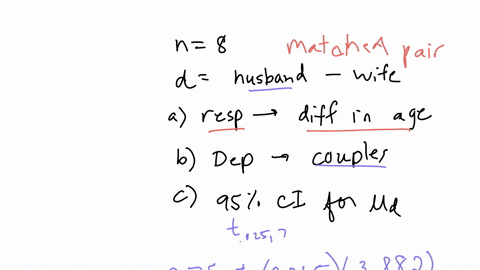 n = 8 matched pair
d = husband − wife
a) resp → diff in age
b) Dep → couples
c) 95% CI for μd
t.025,7